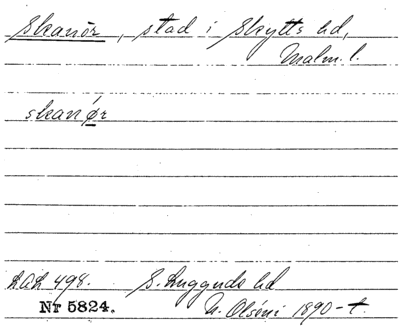 Skanör, stad i Skytts hd,
Malm. l.
skanǿr
LAL 498. S. Luggude hd
Nr 5824. N. Olséni 1890-t.